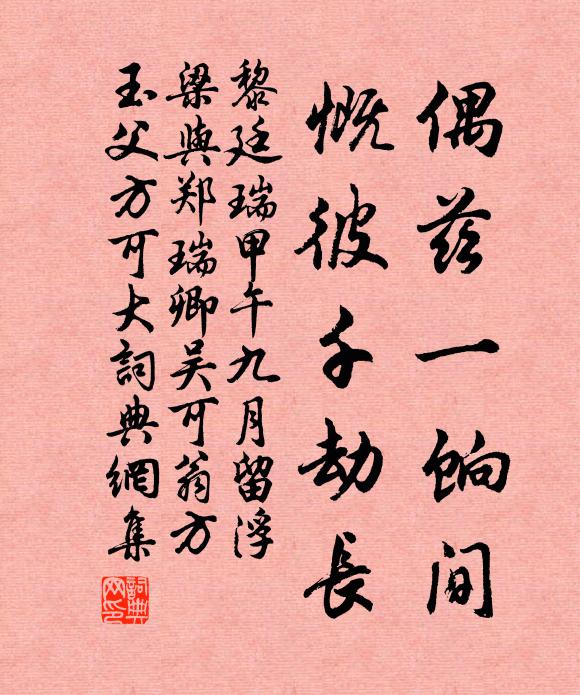 偶茲一餉間
慨彼千劫長
黎廷瑞甲午九月留浮
梁與郑瑞卿吴可翁方
玉父方可大詞典網集
詞典網印